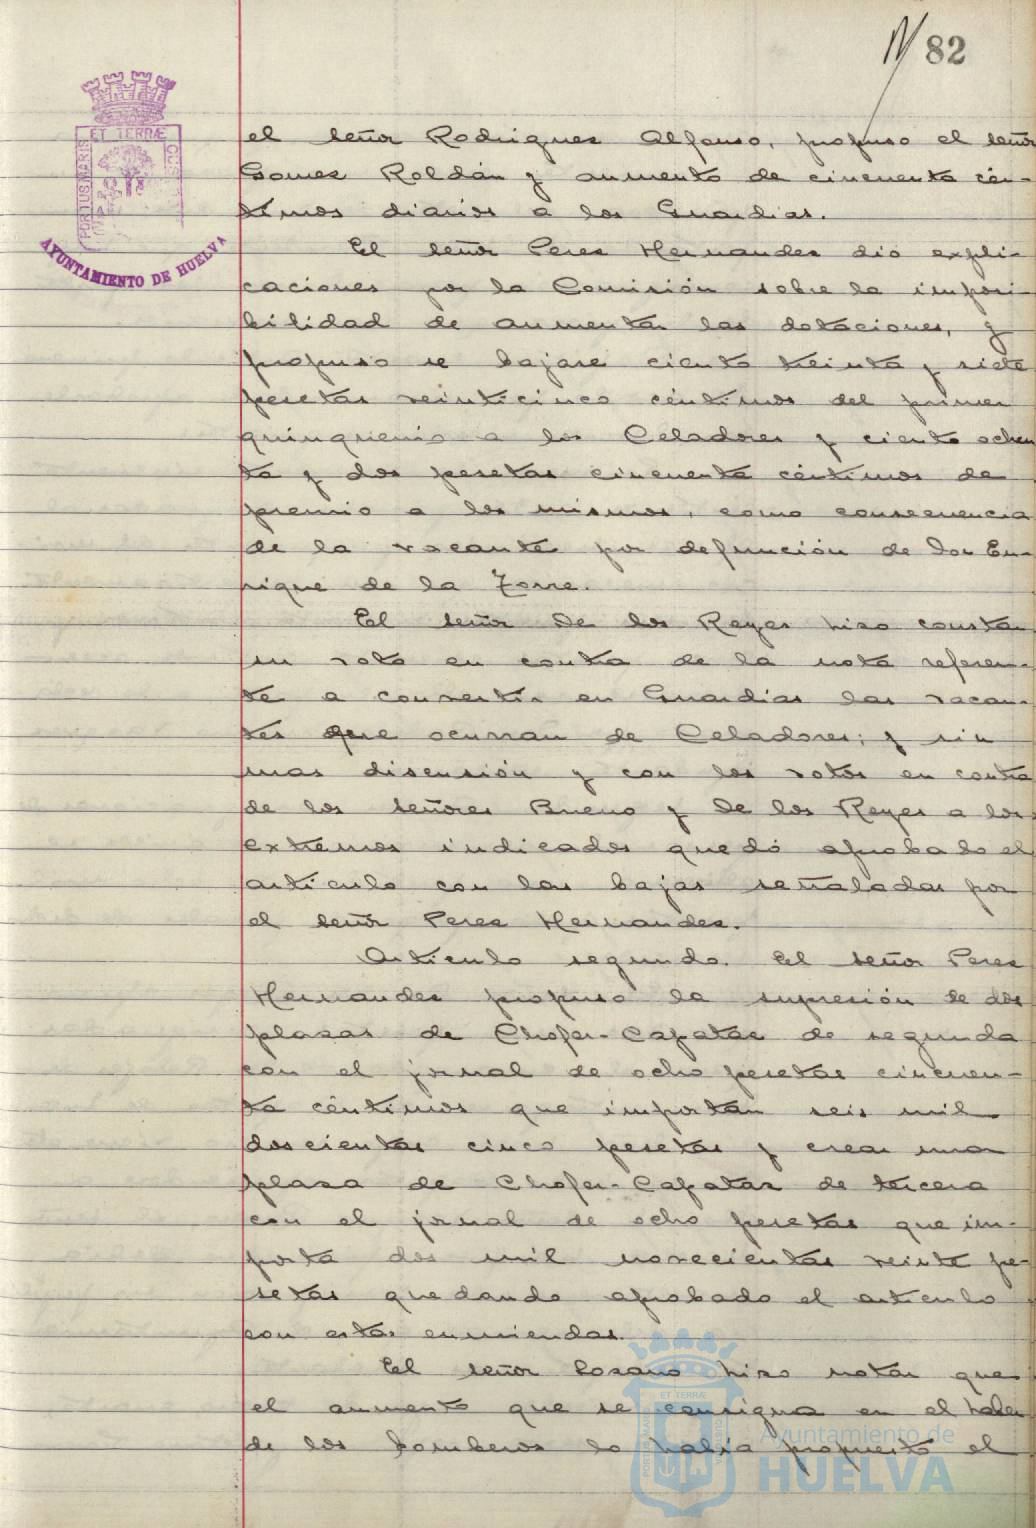 82
ET TERRÆ
PORTUS MARIS
AYUNTAMIENTO DE HUELVA
el señor Rodriguez Alfonso, propuso el señor
Gomez Roldán y aumento de cincuenta cén-
timos diarios a los Guardias.
El señor Perez Hernandez dió expli-
caciones por la Comisión sobre la imposi-
bilidad de aumentar las dotaciones, y
propuso se bajase ciento treinta y siete
pesetas veinticinco céntimos del primer
quinquenio a los Celadores y ciento ochen
ta y dos pesetas cincuenta céntimos de
premio a los mismos, como consecuencia
de la vacante por defunción de Don En-
rique de la Torre.
El señor De los Reyes hizo constar
su voto en contra de la nota referen-
te a convertir en Guardias las vacan-
tes que ocurran de Celadores; y sin
mas discusión y con los votos en contra
de los señores Bueno y De los Reyes a los
extremos indicados quedó aprobado el
artículo con las bajas señaladas por
el señor Perez Hernandez.
Artículo segundo. El señor Perez
Hernandez propuso la supresión de dos
plazas de Chofer-Capataz de segunda
con el jornal de ocho pesetas cincuen-
ta céntimos que importan seis mil
doscientas cinco pesetas y crear una
plaza de Chofer-Capataz de tercera
con el jornal de ocho pesetas que im-
porta dos mil novecientas veinte pe-
setas quedando aprobado el artículo
con estas enmiendas.
El señor Lozano hizo notar que
el aumento que se consigna en el haber
de los bomberos lo había propuesto el
ET TERRÆ
PORTUS MARIS
Ayuntamiento de
HUELVA